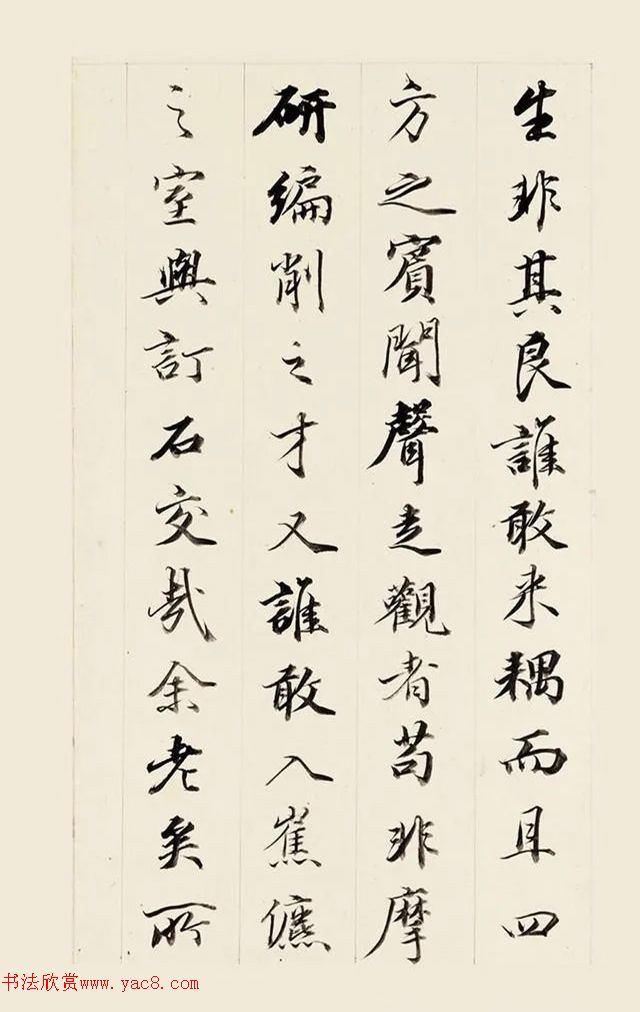 生非其良誰敢来耦而且四
方之賓聞聲走觀者苟非摩
研編削之才又誰敢入崔儦
之室與訂石交哉余老矣所
书法欣赏www.yac8.com